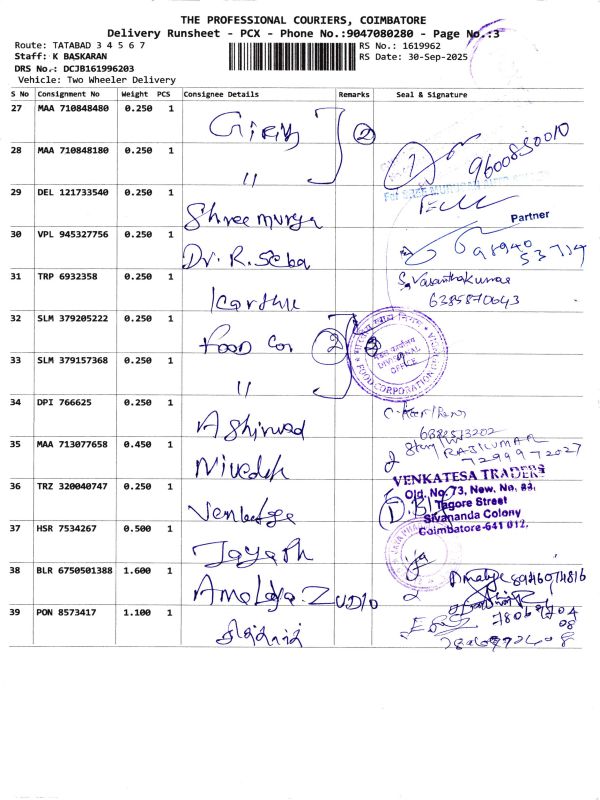 THE PROFESSIONAL COURIERS, COIMBATORE
Delivery Runsheet - PCX - Phone No.:9047080280 - Page No.:3
Route: TATABAD 3 4 5 6 7
RS No.: 1619962
Staff: K BASKARAN
RS Date: 30-Sep-2025
DRS No.: DCJB161996203
Vehicle: Two Wheeler Delivery
S No Consignment No Weight PCS Consignee Details Remarks Seal & Signature
27 MAA 710848480 0.250 1 Girish 2
28 MAA 710848180 0.250 1 "
9600850010
29 DEL 121733540 0.250 1 Shree murga
Partner
30 VPL 945327756 0.250 1 Dr. R. Seba
31 TRP 6932358 0.250 1 Karthik
S. Vasanthakumar
6385870643
32 SLM 379205222 0.250 1 Food Cor 2
DIVISIONAL OFFICE
FOOD CORPORATION
33 SLM 379157368 0.250 1 "
34 DPI 766625 0.250 1 Ashirwad
35 MAA 713077658 0.450 1 Nivedh
RAJKUMAR
7299972027
36 TRZ 320040747 0.250 1
VENKATESA TRADERS
Old. No. 73, New. No. 83,
Tagore Street
Sivananda Colony
Coimbatore-641 012.
37 HSR 7534267 0.500 1 Jayash
38 BLR 6750501388 1.600 1 ZUDIO
39 PON 8573417 1.100 1